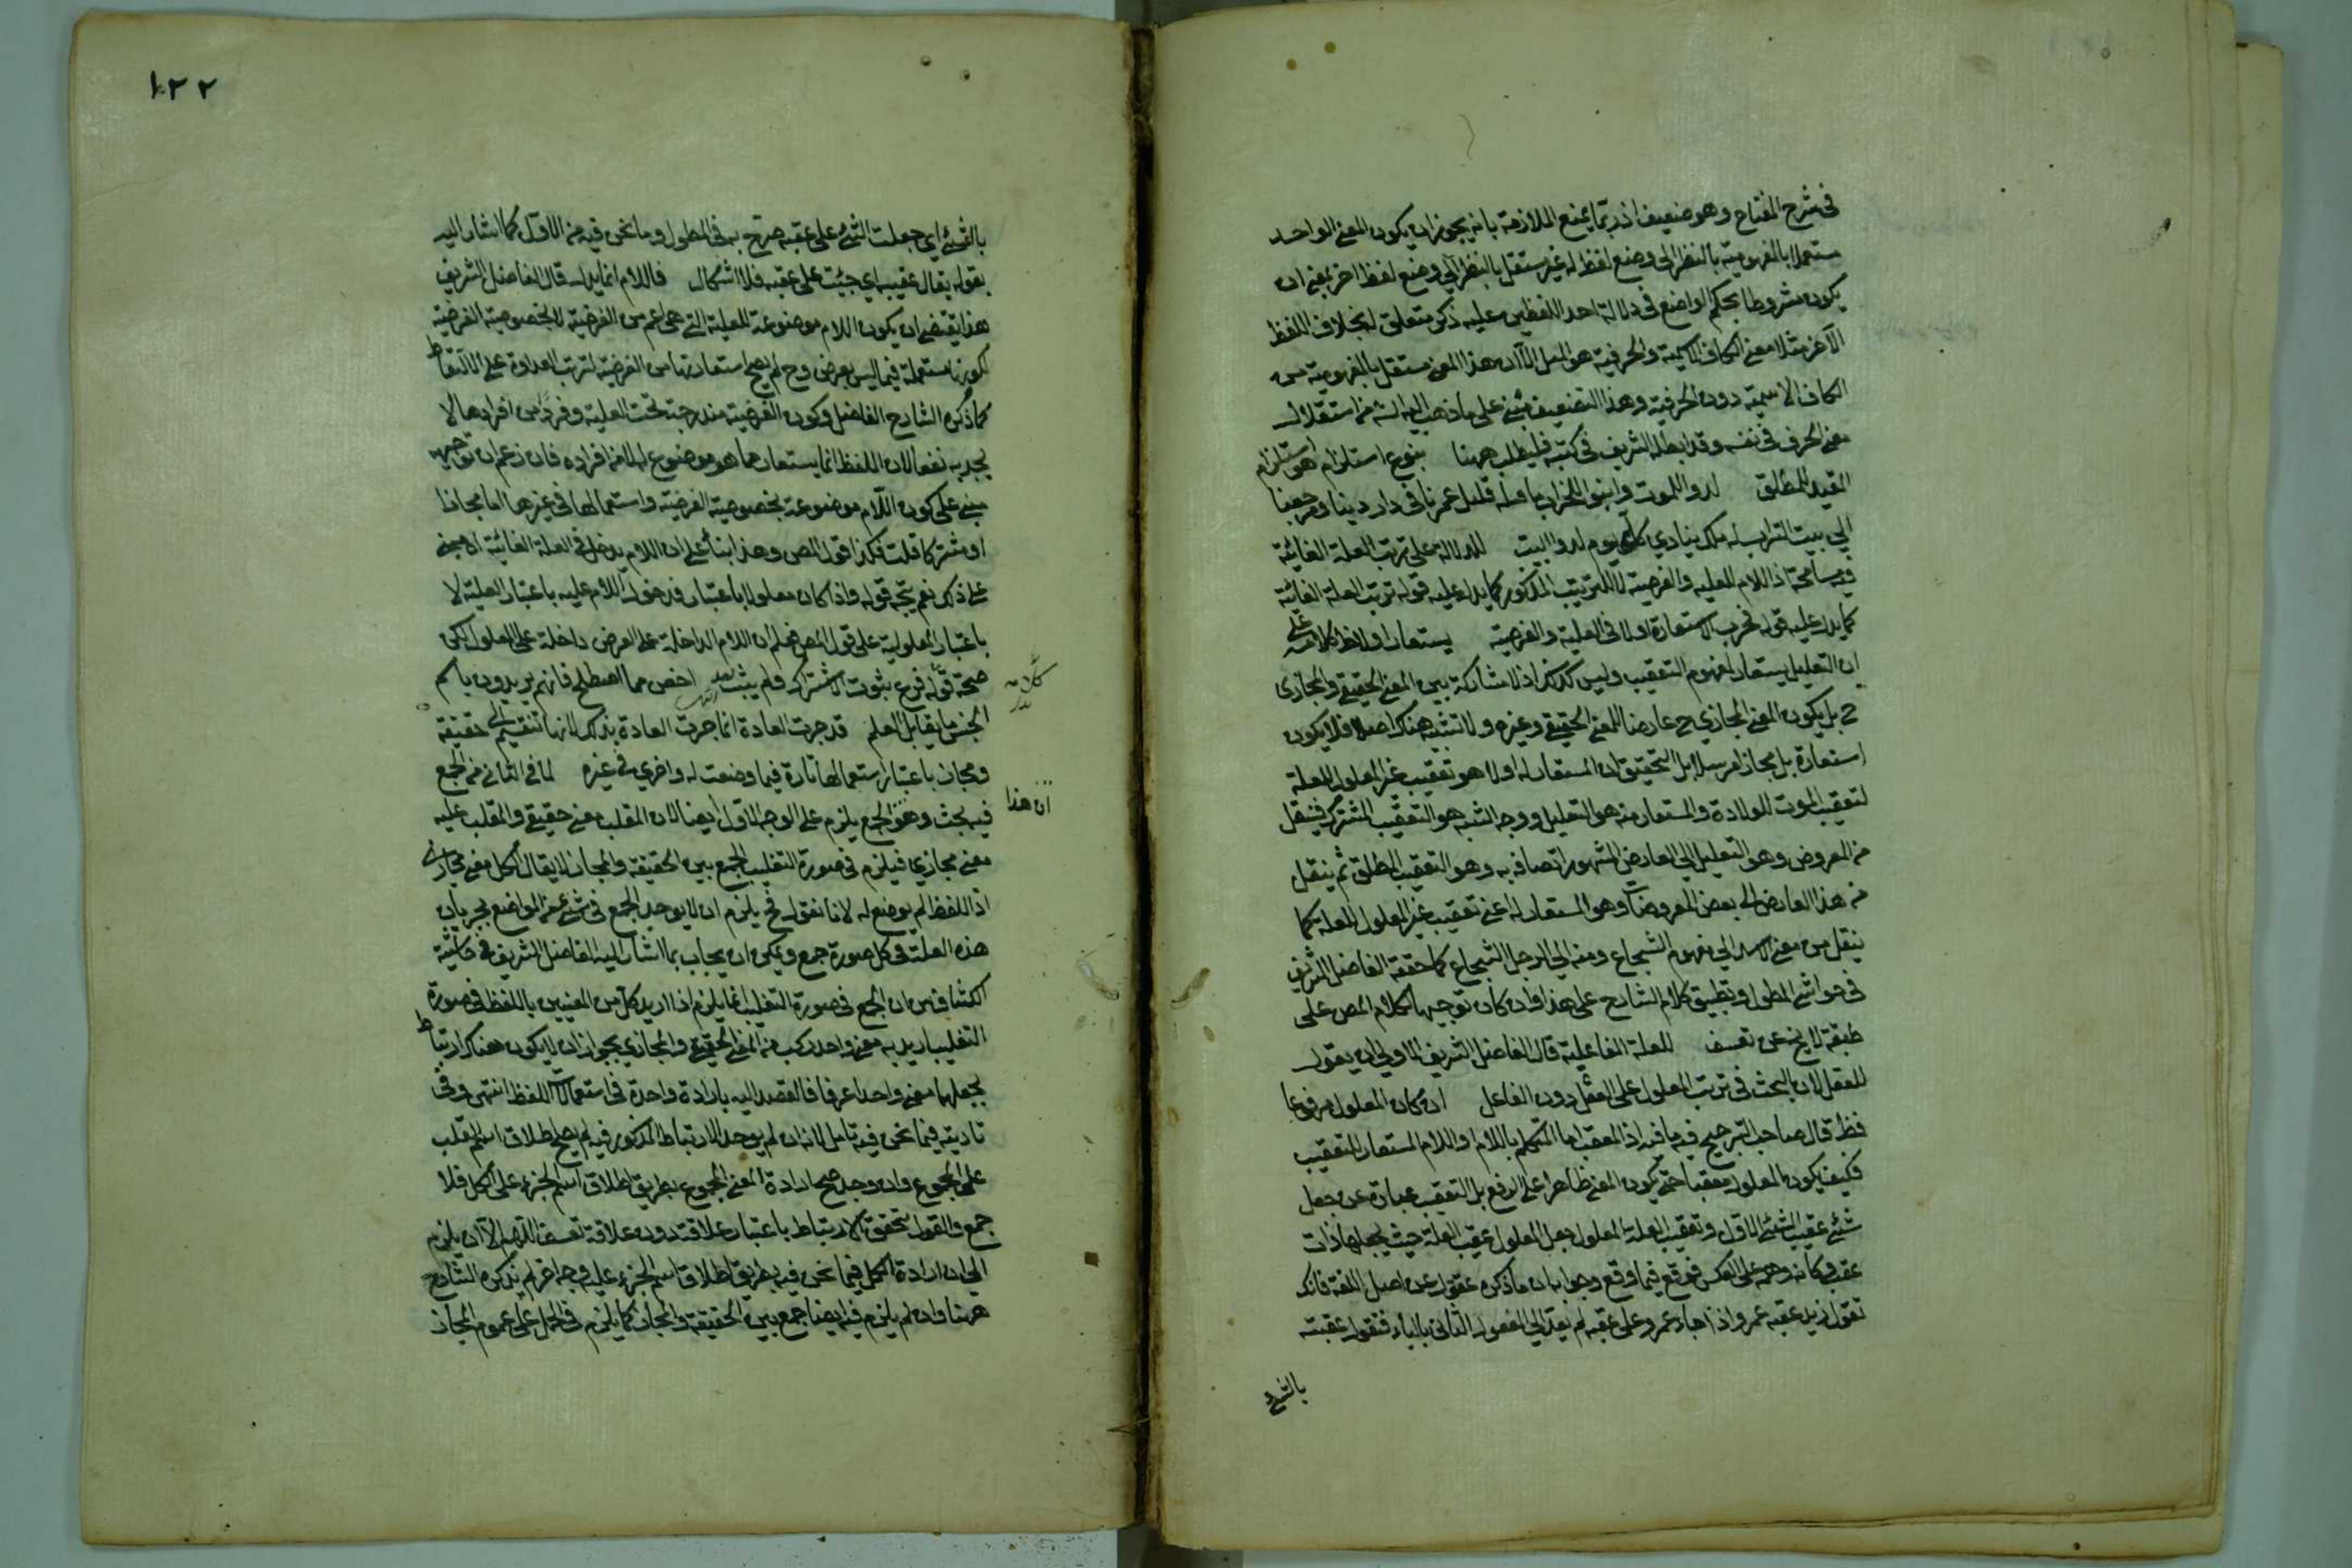 في شرح المفتاح وهو ضعيف اذ ربما يمنع الملازمة بانه يجوز ان يكون المعنى الواحد
مستقلا بالمفهومية بالنظر الى وضع لفظ له غير مستقل بالنظر الى وضع لفظ اخر بمعنى ان
يكون مشروطا بحكم الواضع في دلالة احد اللفظين عليه ذكر متعلق له بخلاف اللفظ
الآخر مثلا معنى الكاف الاسمية والحرفية هو المثل الا ان هذا المعنى مستقل بالمفهومية من
الكاف الاسمية دون الحرفية وهذا التضعيف مبني على ما ذهب اليه الش من استقلال
معنى الحرف في نفسه وقد ابطله الشريف في كتبه فليطلب ههنا بنوع استلزام هو استلزام
المقيد للمطلق لدوا للموت وابنوا للخراب ما قبله قليل عمرنا في دار دينا ومرجعنا
الى بيت التراب له ملك ينادي كل يوم لدوا البيت للدلالة على ترتب العلة الغائية
فيه مسامحة اذ اللام للعلية والغرضية لا للترتيب المذكور كما يدل عليه قوله ترتب العلة الغائية
كما يدل عليه قوله فجرت الاستعارة اولا في العلية والغرضية يستعار اولا ظ كلامه على
ان التعليل يستعار لمفهوم التعقيب وليس كذلك اذ لا مشاركة بين المعنى الحقيقي والمجازي
ح بل يكون المعنى المجازي ح عارضا للمعنى الحقيقي وغيره ولا تشبيه هناك اصلا فلا يكون
استعارة بل مجازا مرسلا بل التحقيق ان المستعار له اولا هو تعقيب غير المعلول للعلة
لتعقيب الموت للولادة والمستعار منه هو التعليل ووجه الشبه هو التعقيب المشترك فينتقل
من المعروض وهو التعليل الى العارض المشهور اتصافه به وهو التعقيب المطلق ثم ينتقل
من هذا العارض الى بعض المعروضات وهو المستعار له اعني تعقيب غير المعلول للعلة كما
ينتقل من معنى الاسد الى مفهوم الشجاع ومنه الى الرجل الشجاع كما حققه الفاضل الشريف
في حواشي المطول وتطبيق كلام الشارح على هذا وان كان توجيها لكلام المص على
طبقه لا يخ عن تعسف للعلة الفاعلية قال الفاضل الشريف الاولى ان يقول
للعقل لان البحث في ترتب المعلول على العقل دون الفاعل ان كان المعلول مرفوعا
فظ قال صاحب الترجيح فيه ما فيه اذ المعقب اما المتكلم باللام او اللام المستعار للتعقيب
فكيف يكون المعلول معقبا حتى يكون المعنى ظاهرا على الرفع بل التعقيب عبارة عن جعل
شئ عقيب الشئ الاول وتعقيب العلة المعلول جعل المعلول عقيب العلة حيث يجعلها ذات
عقب وكانه وهمه على العكس فوقع فيما وقع وجوابه ان ما ذكره عقول عن اصل اللغة فانك
تقول زيد عقبه عمرو اذا جاء عمرو على عقبه ثم تعديه الى المفعول الثاني بالباء فتقول عقبته
بالشئ
١٢٢
بالشئ اي جعلت الشئ على عقبه صرح به في المطول وما نحن فيه من الاول كما اشار اليه
بقوله يقال عقيبه اي جئت على عقبه فلا اشكال فاللام انما يدل قال الفاضل الشريف
هذا يقتضي ان يكون اللام موضوعة للعلية التي هي اعم من الغرضية لا لخصوصية الغرضية
لكونها مستعملة فيما ليس بغرض وح لم يصح استعارتها من الغرضية لترتب العداوة على الالتقاط
كما ذكره الشارح الفاضل وكون الغرضية مندرجة تحت العلية وفردا من افرادها لا
يجديه نفعا لان اللفظ انما يستعار مما هو موضوع له لا من افراده فان زعم ان توجيهه
مبني على كون اللام موضوعة بخصوصية الغرضية واستعمالها في غيرها اما مجازا
او مشتركا قلت فكذا قول المص وهذا بناء على ان اللام يدخل في العلة الغائية اه مبني
على ذلك نعم يتجه قوله واذا كان معلولا باعتبار فدخول اللام عليه باعتبار العلية لا
باعتبار المعلولية على قول المص فعلم ان اللام الداخلة على الغرض داخلة على المعلول لكن
صحة قوله فرع ثبوت الاشتراك ولم يثبت بعد اخص مما اصطلح فانهم يريدون باسم
الجنس ما يقابل العلم قد جرت العادة انما جرت العادة بذلك لانها تنقسم الى حقيقة
ومجاز باعتبار استعمالها تارة فيما وضعت له واخرى في غيره لما في الثاني من الجمع
فيه بحث وهو الجمع يلزم على الوجه الاول ايضا لان المغلب معنى حقيقي والمغلب عليه
معنى مجازي فيلزم في صورة التغليب الجمع بين الحقيقة والمجاز لا يقال الكل معنى مجازي
اذ اللفظ لم يوضع له لانا نقول فح يلزم ان لا يوجد الجمع في شئ من المواضع لجريان
هذه العلة في كل صورة جمع ويمكن ان يجاب بما اشار اليه الفاضل الشريف في حاشية
الكشاف من ان الجمع في صورة التغليب انما يلزم اذا اريد كل من المعنيين باللفظ وفي صورة
التغليب اريد به معنى واحد مركب من المعنى الحقيقي والمجازي بجواز ان لا يكون هناك ارتباط
يجعلهما معنى واحدا عرفا فالقصد اليه بارادة واحدة في استعمال اللفظ انتهى وفي
تأديته فيما نحن فيه تأمل لانه ان لم يوجد الارتباط المذكور فيه لم يصح اطلاق اسم المغلب
على المجموع وان وجد صح ارادة المعنى المجموع بطريق اطلاق اسم الجزء على الكل فلا
جمع والقول بتحقق الارتباط باعتبار علاقة دون علاقة تعسف اللهم الا ان يلزم
الى ان ارادة الكل فيما نحن فيه بطريق اطلاق اسم الجزء عليه وجه اخر لم يذكره الشارح
ههنا وان لم يلزم فيه ايضا جمع بين الحقيقة والمجاز كما يلزم في الحمل على عموم المجاز
ان هذا